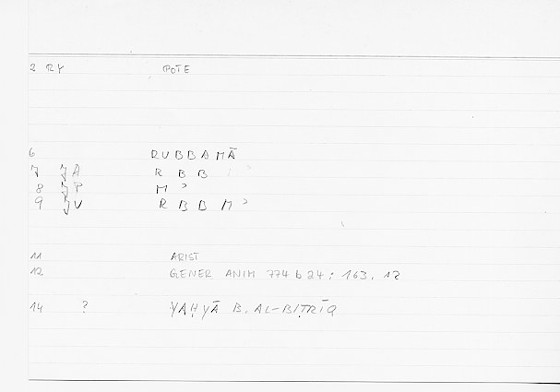 2 RY POTE
6 RUBBAMĀ
7 JA R B B
8 JP M ʾ
9 JV R B B M ʾ
11 ARIST
12 GENER ANIM 774 b 24 ; 163, 17
14 ? YAḤYĀ B. AL-BIṬRĪQ